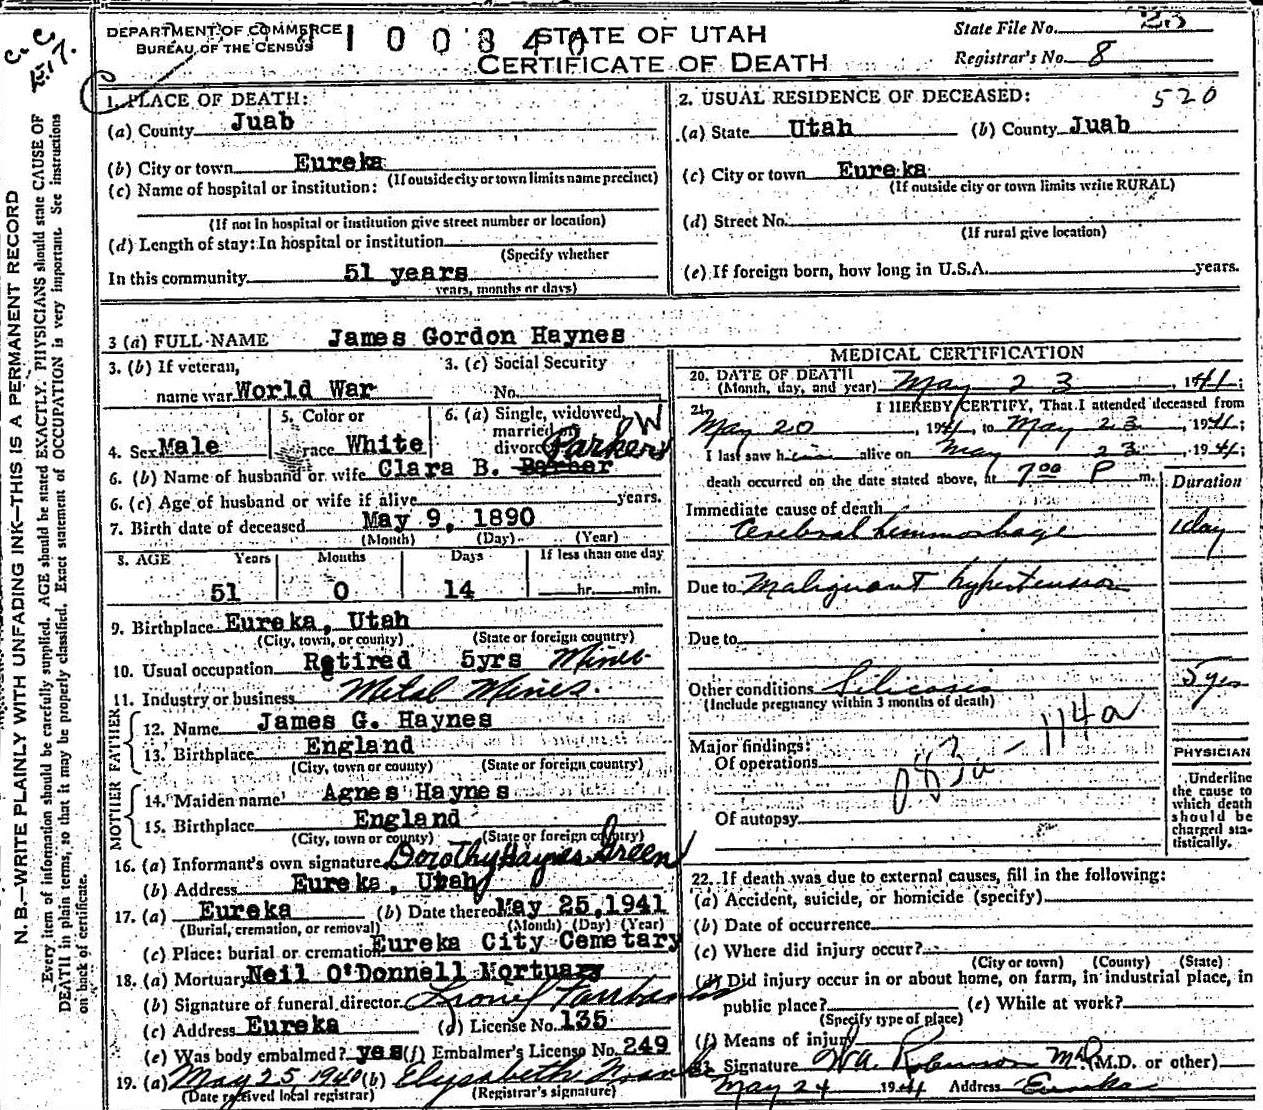 DEPARTMENT OF COMMERCE
BUREAU OF THE CENSUS
100840
STATE OF UTAH
CERTIFICATE OF DEATH
State File No. 23
Registrar's No. 8
1. PLACE OF DEATH:
(a) County Juab
(b) City or town Eureka
(If outside city or town limits name precinct)
(c) Name of hospital or institution:
(If not in hospital or institution give street number or location)
(d) Length of stay: In hospital or institution
(Specify whether
In this community 51 years
years, months or days)
2. USUAL RESIDENCE OF DECEASED: 520
(a) State Utah (b) County Juab
(c) City or town Eureka
(If outside city or town limits write RURAL)
(d) Street No.
(If rural give location)
(e) If foreign born, how long in U.S.A. years.
3 (a) FULL NAME James Gordon Haynes
3. (b) If veteran,
name war World War
3. (c) Social Security
No.
4. Sex Male
5. Color or
race White
6. (a) Single, widowed,
married or
divorced W
Parker
6. (b) Name of husband or wife Clara B. Barber
6. (c) Age of husband or wife if alive years.
7. Birth date of deceased May 9, 1890
(Month) (Day) (Year)
8. AGE Years Months Days If less than one day
51 0 14 hr. min.
9. Birthplace Eureka, Utah
(City, town, or county) (State or foreign country)
10. Usual occupation Retired 5yrs Miner
11. Industry or business Metal Mines.
FATHER
12. Name James G. Haynes
13. Birthplace England
(City, town or county) (State or foreign country)
MOTHER
14. Maiden name Agnes Haynes
15. Birthplace England
(City, town or county) (State or foreign country)
16. (a) Informant's own signature Dorothy Haynes Green
(b) Address Eureka, Utah
17. (a) Eureka (b) Date thereof May 25, 1941
(Burial, cremation, or removal) (Month) (Day) (Year)
(c) Place: burial or cremation Eureka City Cemetary
18. (a) Mortuary Neil O'Donnell Mortuary
(b) Signature of funeral director Lionel Fairbanks
(c) Address Eureka (d) License No. 135
(e) Was body embalmed? yes (f) Embalmer's License No. 249
19. (a) May 25, 1940 (b) Elysabeth
(Date received local registrar) (Registrar's signature)
MEDICAL CERTIFICATION
20. DATE OF DEATH
(Month, day, and year) May 23, 1941;
21. I HEREBY CERTIFY, That I attended deceased from
May 20, 1941, to May 23, 1941;
I last saw him alive on May 23, 1941;
death occurred on the date stated above, at 7:00 P m.
Duration
Immediate cause of death
Cerebral hemmorhage 1 day
Due to Malignant hypertension
Due to
Other conditions Silicosis 5 yrs
(Include pregnancy within 3 months of death)
Major findings:
Of operations
083a - 114a
Of autopsy
PHYSICIAN
Underline
the cause to
which death
should be
charged sta-
tistically.
22. If death was due to external causes, fill in the following:
(a) Accident, suicide, or homicide (specify)
(b) Date of occurrence
(c) Where did injury occur?
(City or town) (County) (State)
(d) Did injury occur in or about home, on farm, in industrial place, in
public place? (e) While at work?
(Specify type of place)
(f) Means of injury
23. Signature W A Robinson M.D. (M.D. or other)
May 24 1941 Address Eureka
N. B.—WRITE PLAINLY WITH UNFADING INK—THIS IS A PERMANENT RECORD
Every item of information should be carefully supplied. AGE should be stated EXACTLY. PHYSICIANS should state CAUSE OF
DEATH in plain terms, so that it may be properly classified. Exact statement of OCCUPATION is very important. See instructions
on back of certificate.